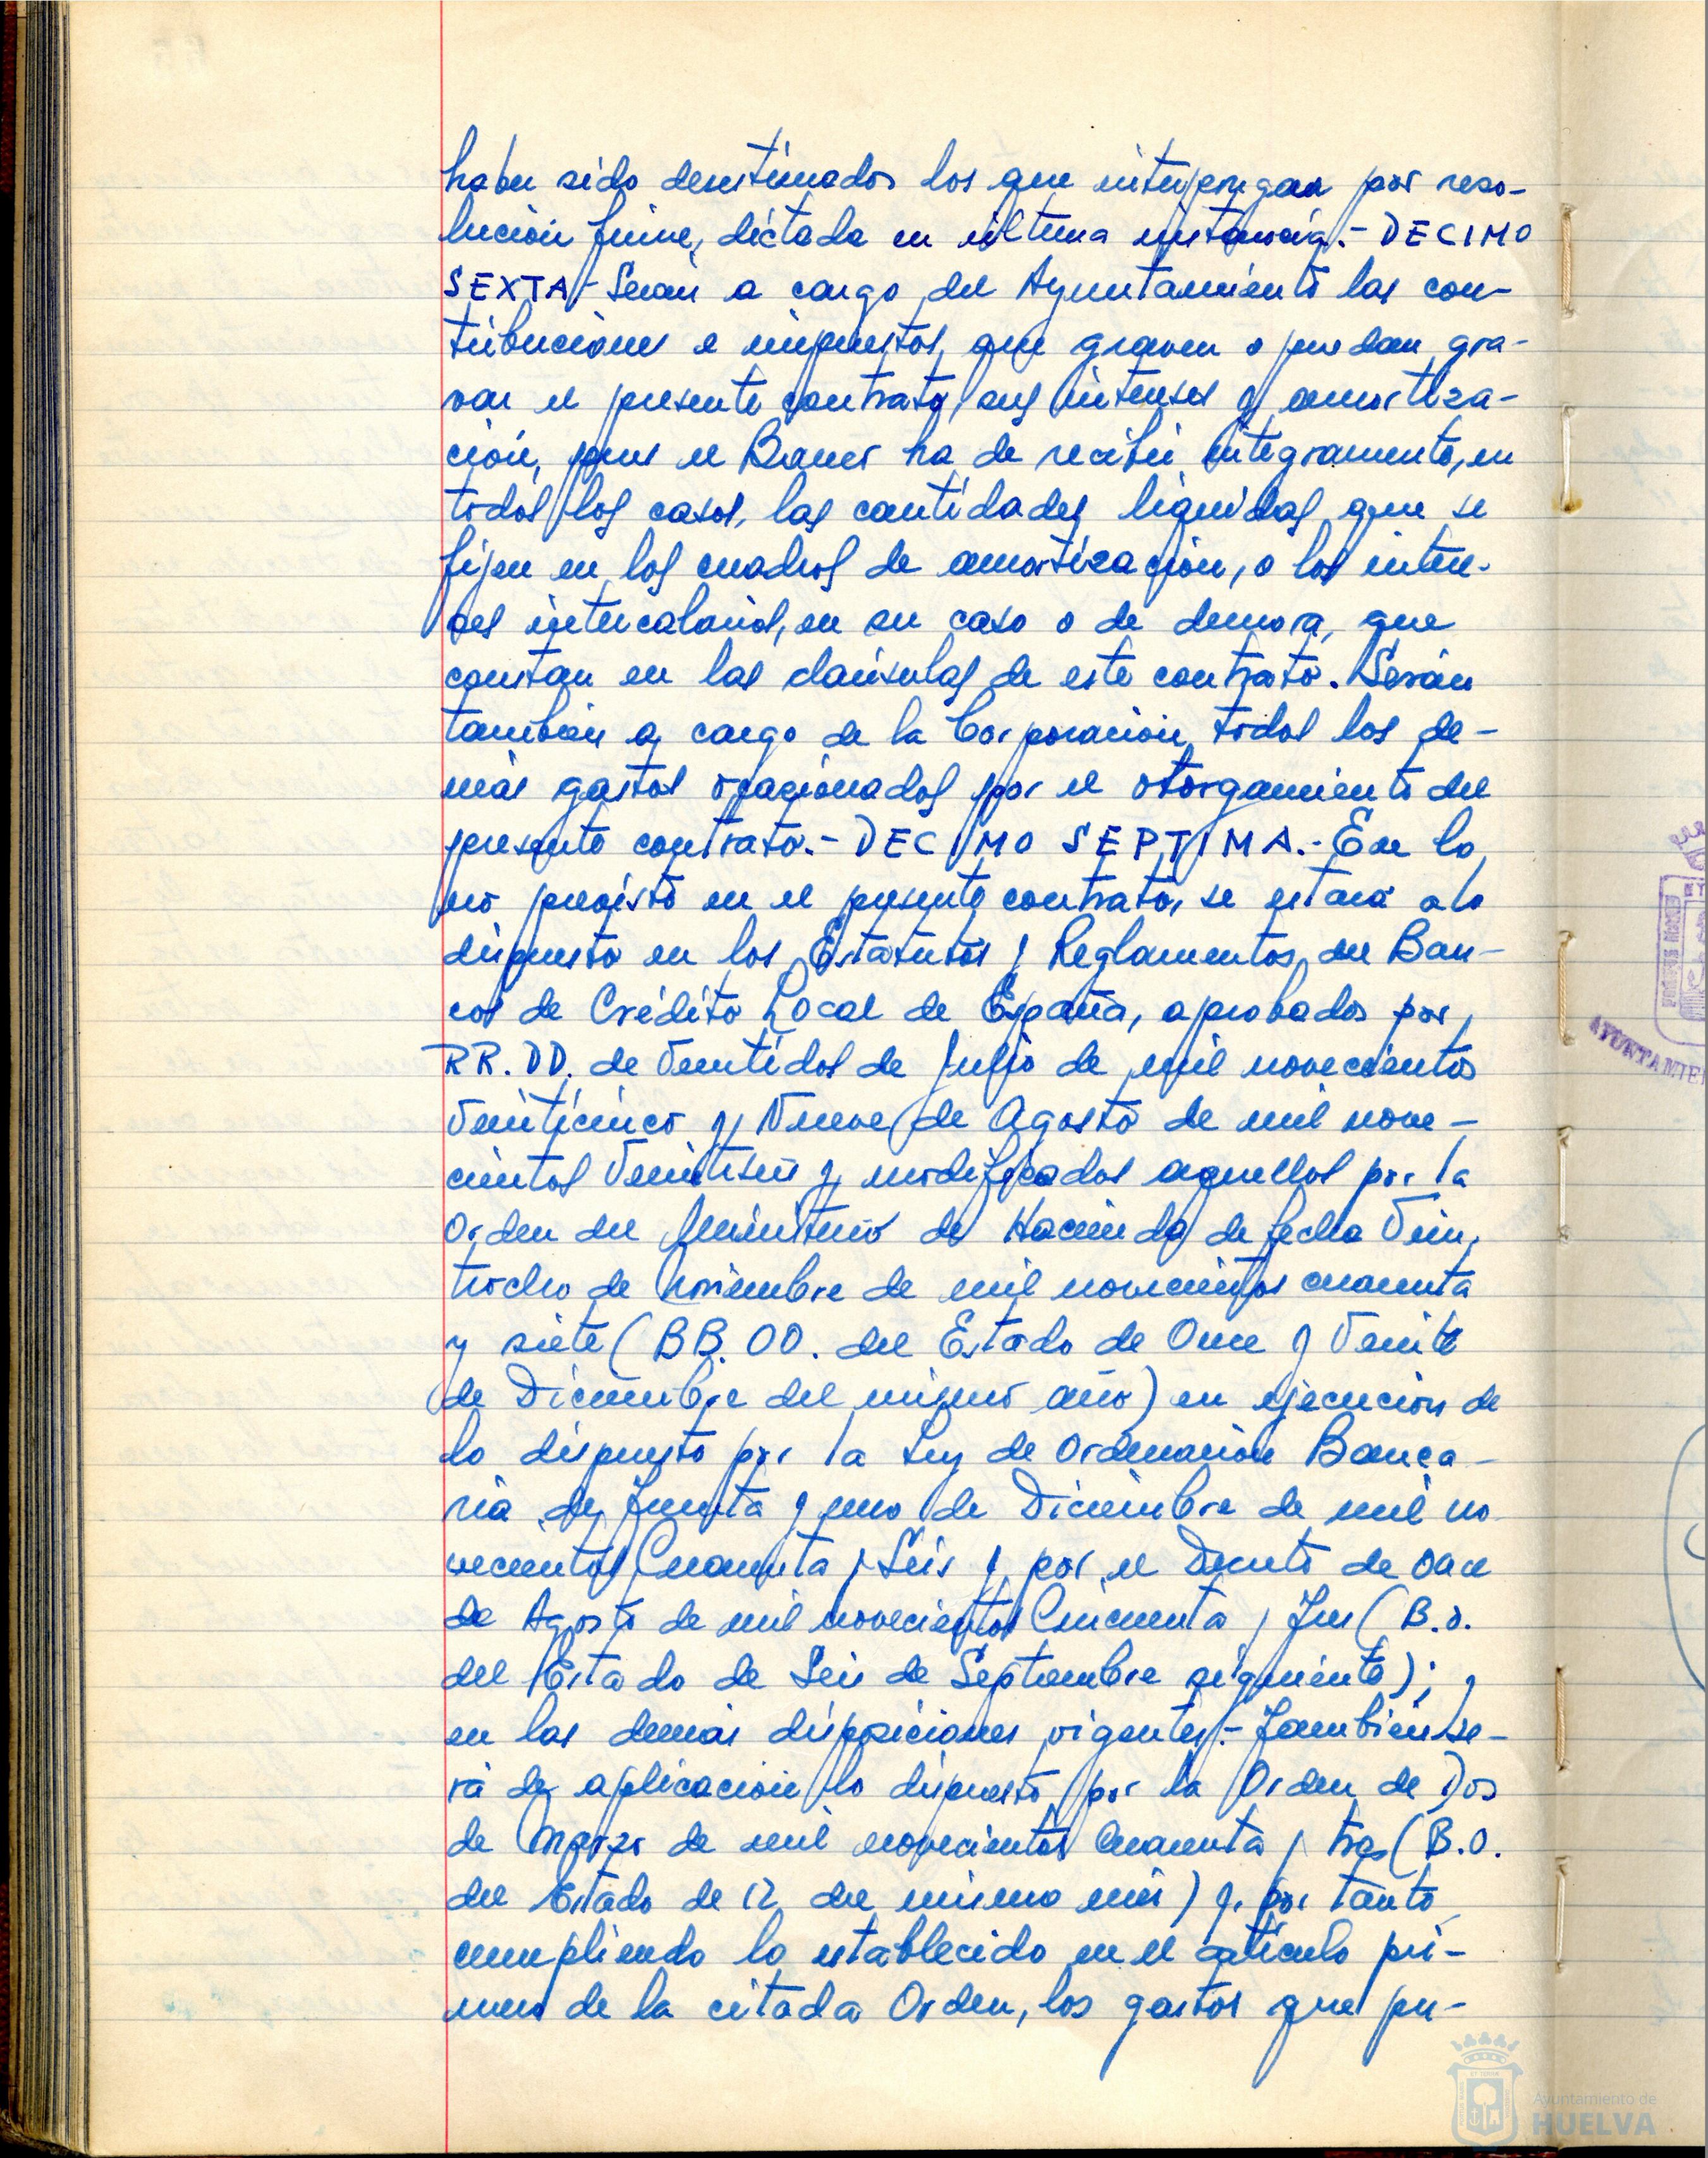 haber sido desestimados los que interpongan por reso-
lución firme, dictada en última instancia.- DECIMO
SEXTA.- Serán a cargo del Ayuntamiento las con-
tribuciones e impuestos que graven o puedan gra-
var el presente contrato, sus intereses y amortiza-
ción, pues el Banco ha de recibir integramente, en
todos los casos, las cantidades liquidas que se
fijen en los cuadros de amortización, o los intere-
ses intercalarios, en su caso o de demora, que
constan en las cláusulas de este contrato. Serán
también a cargo de la Corporación todos los de-
más gastos ocasionados por el otorgamiento del
presente contrato.- DECIMO SEPTIMA.- En lo
no previsto en el presente contrato, se estará a lo
dispuesto en los Estatutos y Reglamentos del Ban-
co de Crédito Local de España, aprobados por
RR. DD. de Veintidos de Julio de mil novecientos
Veinticinco y Nueve de Agosto de mil nove-
cientos Veintiseis y modificados aquellos por la
Orden del Ministerio de Hacienda de fecha Vein-
tiocho de Noviembre de mil novecientos cuarenta
y siete (BB. OO. del Estado de Once y Veinte
de Diciembre del mismo año) en ejecución de
lo dispuesto por la Ley de Ordenación Banca-
ria de Treinta y uno de Diciembre de mil no
vecientos Cuarenta y Seis y por el Decreto de Once
de Agosto de mil novecientos Cincuenta y Tres (B.O.
del Estado de Seis de Septiembre siguiente); y
en las demás disposiciones vigentes.- También se-
rá de aplicación lo dispuesto por la Orden de Dos
de Marzo de mil novecientos Cuarenta y tres (B.O.
del Estado de 12 del mismo mes) y, por tanto
cumpliendo lo establecido en el artículo pri-
mero de la citada Orden, los gastos que pu-
AYUNTAMIE
Ayuntamiento de
HUELVA